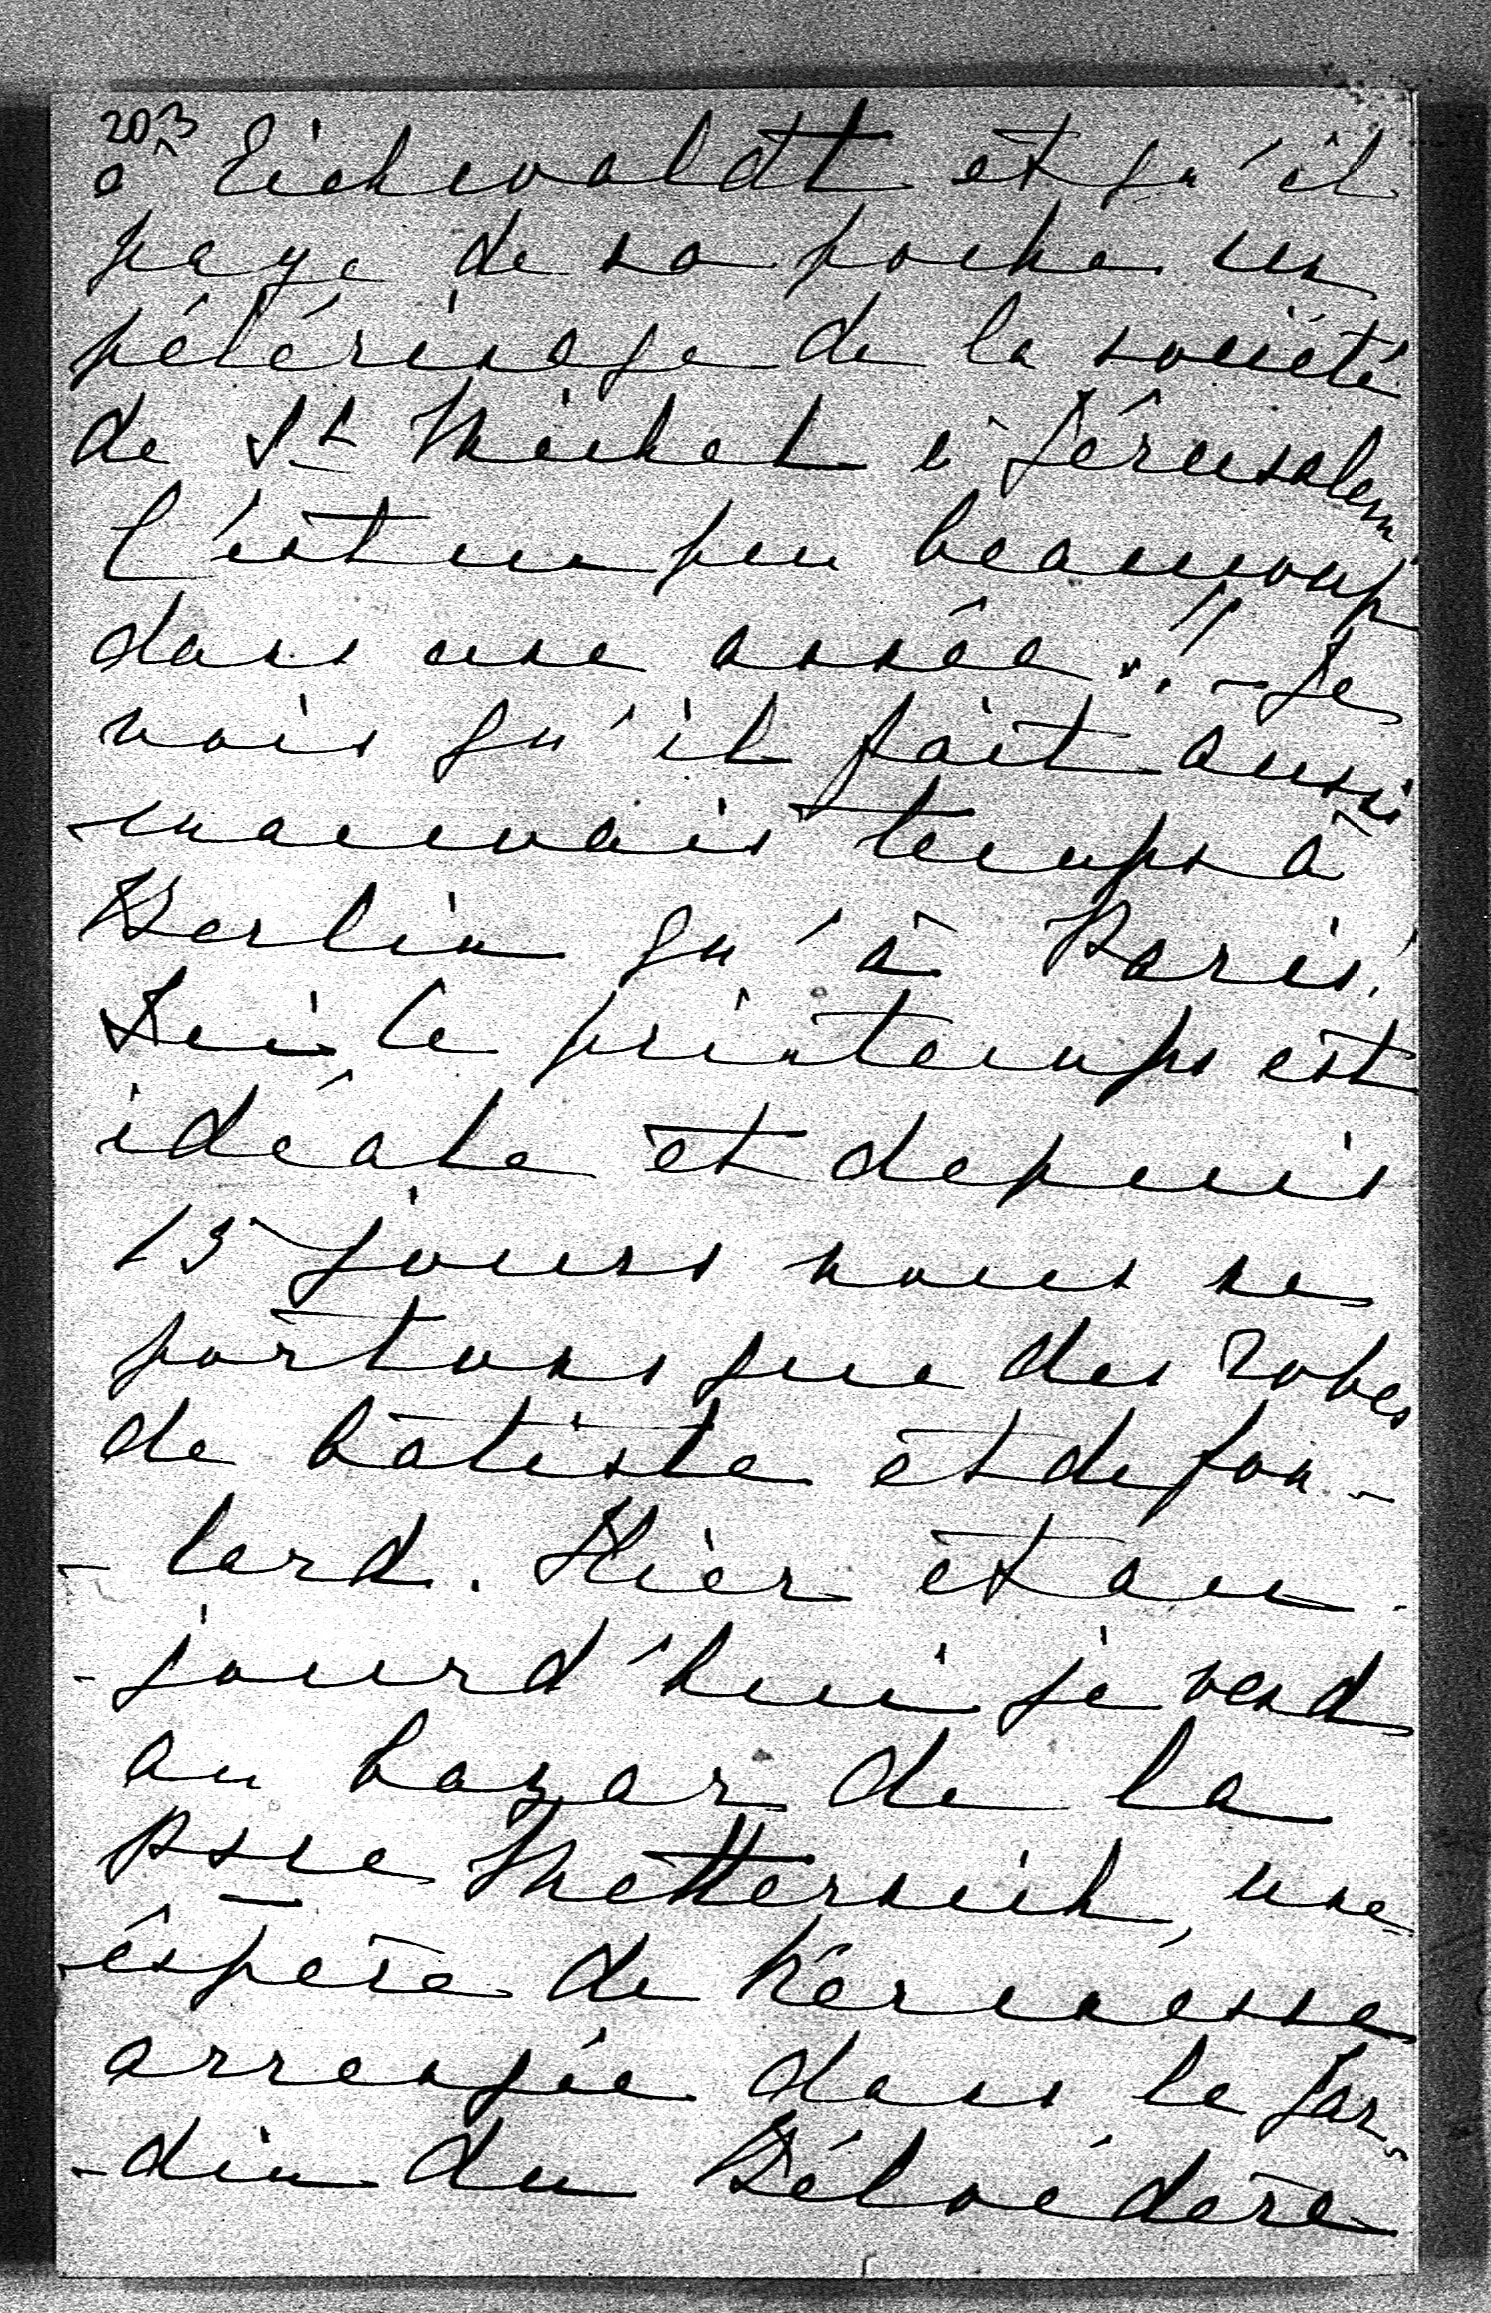 203
à Eichwaldt et qu'il
paye de sa poche un
pélérinage de la société
de St Michel à Jérusalem
C'est un peu beaucoup
dans une année!! - Je
vois qu'il fait aussi
mauvais temps à
Berlin qu'à Paris!
Ici le printemps est
idéale et depuis
15 jours nous ne
portons que des robes
de batiste et de fou-
- lard. Hier et au-
- jourd'hui je vend
au bazar de la
Psse Metternich, une
éspèce de Kermesse
arrengée dans le Jar-
- din du Bélvédère